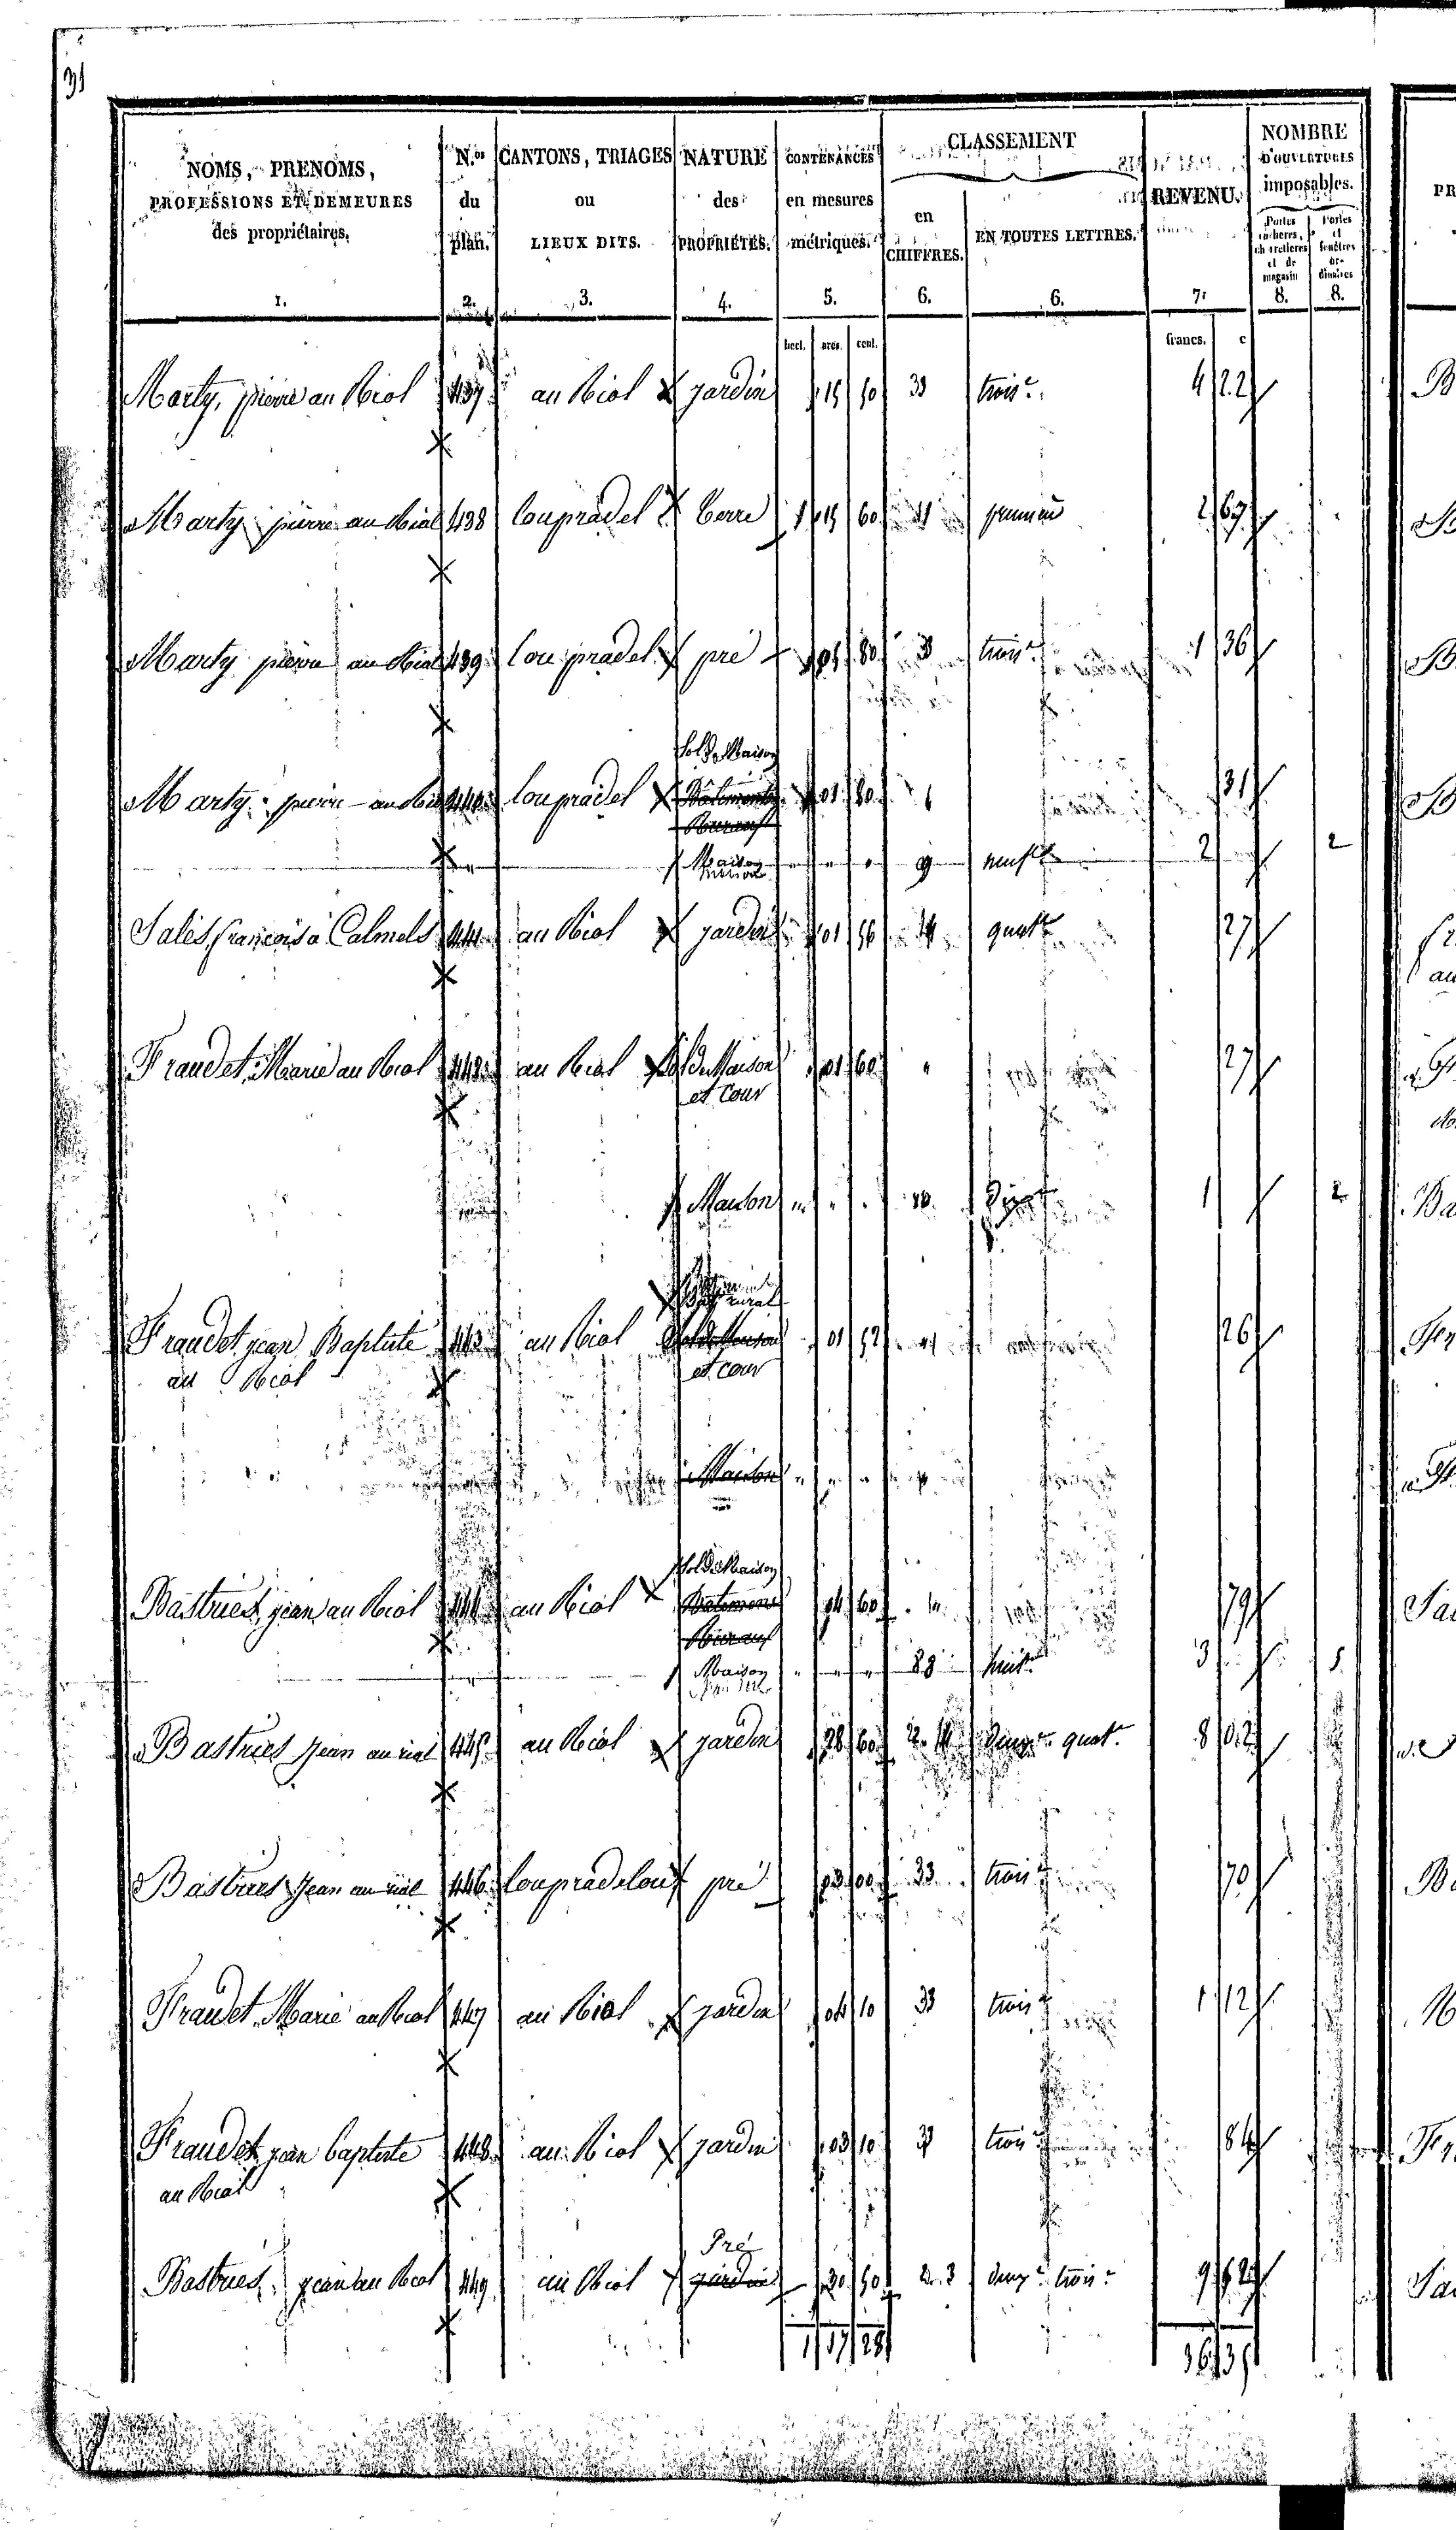 31
NOMS, PRENOMS, PROFESSIONS ET DEMEURES des propriétaires. 1.
N.os du plan. 2.
CANTONS, TRIAGES ou LIEUX DITS. 3.
NATURE des PROPRIÉTÉS. 4.
CONTENANCES en mesures métriques. 5.
CLASSEMENT
en CHIFFRES. 6.
EN TOUTES LETTRES. 6.
REVENU. 7.
NOMBRE D'OUVERTURES imposables.
Portes cochères, charretières et de magasin 8.
Portes et fenêtres ordinaires 8.
hect. ares. cent. francs. c
Marty, pierre au Riol 437 au Riol jardin 15 50 33 trois.e 4 22
Marty pierre au Riol 438 loupradel terre 15 60 premiere 2 67
Marty pierre au Riol 439 lou pradel pré 05 80 3 trois.e 1 36
Sol de Maison
Marty pierre au Riol 440 loupradel Bâtiments 01 80 31
Ruraux
Maison 9 neuf.e 2 2
Salés, françois à Calmels 441 au Riol jardin 01 56 4 quat.e 27
Fraudet, Marie au Riol 442 au Riol Sol de Maison 01 60 27
et Cour
Maison 10 dix.e 1 2
rural
Fraudet, jean Baptiste 443 au Riol Sol de Maison 01 52 26
au Riol et cour
Maison
Sol de Maison
Bastries, jean au Riol 444 au Riol Batiment 04 60 79
Ruraux
Maison 8 huit.e 3 5
Bastries Jean au riol 445 au Riol jardin 28 60 2. 4 deux.e quat.e 8 02
Bastries Jean au riol 446 loupradelou pré 03 00 33 trois.e 70
Fraudet, Marie au Riol 447 au Riol jardin 04 10 33 trois.e 1 12
Fraudet jean baptiste 448 au Riol jardin 03 10 3 trois.e 84
au Riol
Pré
Bastries, jean au Riol 449 au Riol jardin 30 50 2. 3 deux.e trois.e 9 62
1 17 28 36 35